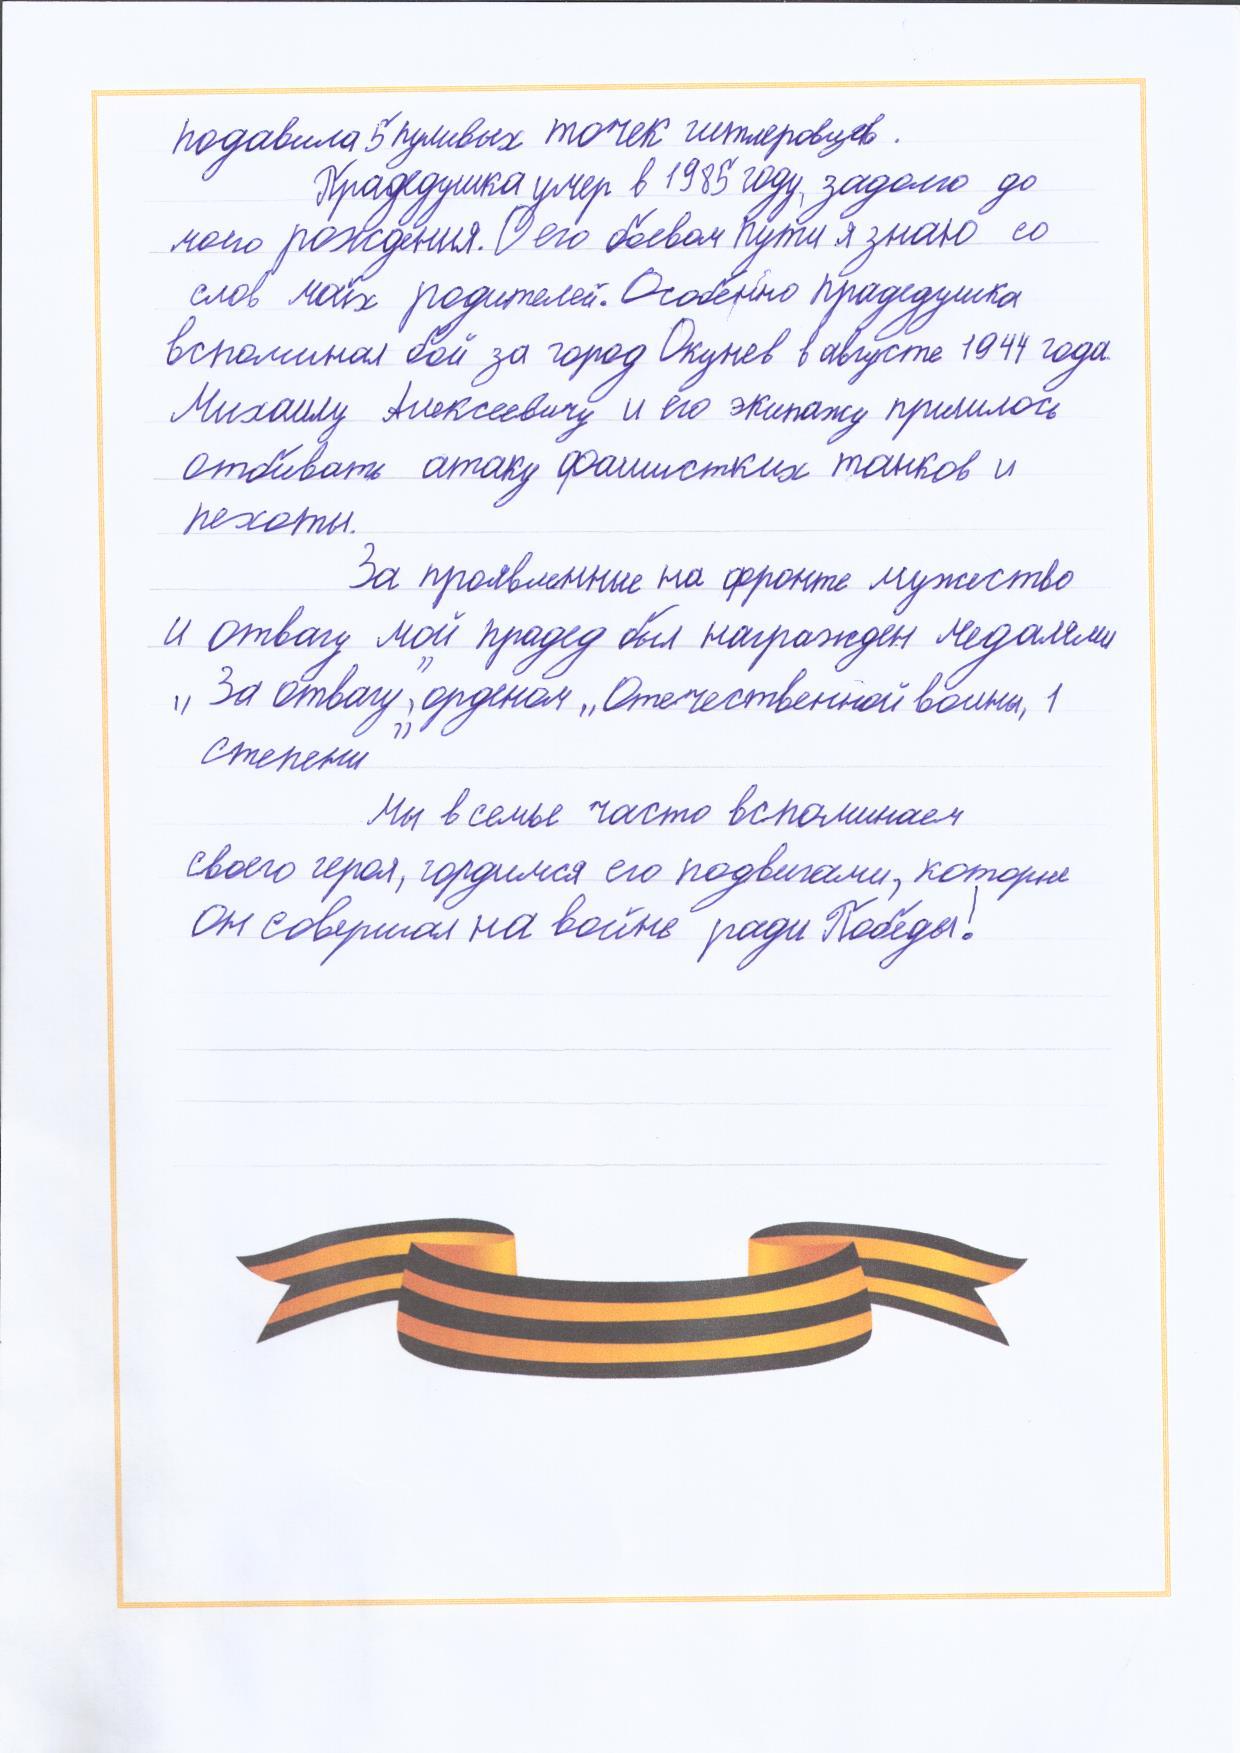 подавила 5 пуливых точек гитлеровцев.
Прадедушка умер в 1985 году, задолго до
моего рождения. О его боевом пути я знаю со
слов моих родителей. Особенно прадедушка
вспоминал бой за город Окунев в августе 1944 года.
Михаилу Алексеевичу и его экипажу пришлось
отбивать атаку фашистких танков и
пехоты.
За проявленные на фронте мужество
и отвагу мой прадед был награжден медалями
„За отвагу”, орденом „Отечественной войны, 1
степени”
Мы в семье часто вспоминаем
своего героя, гордимся его подвигами, которые
он совершал на войне ради Победы!